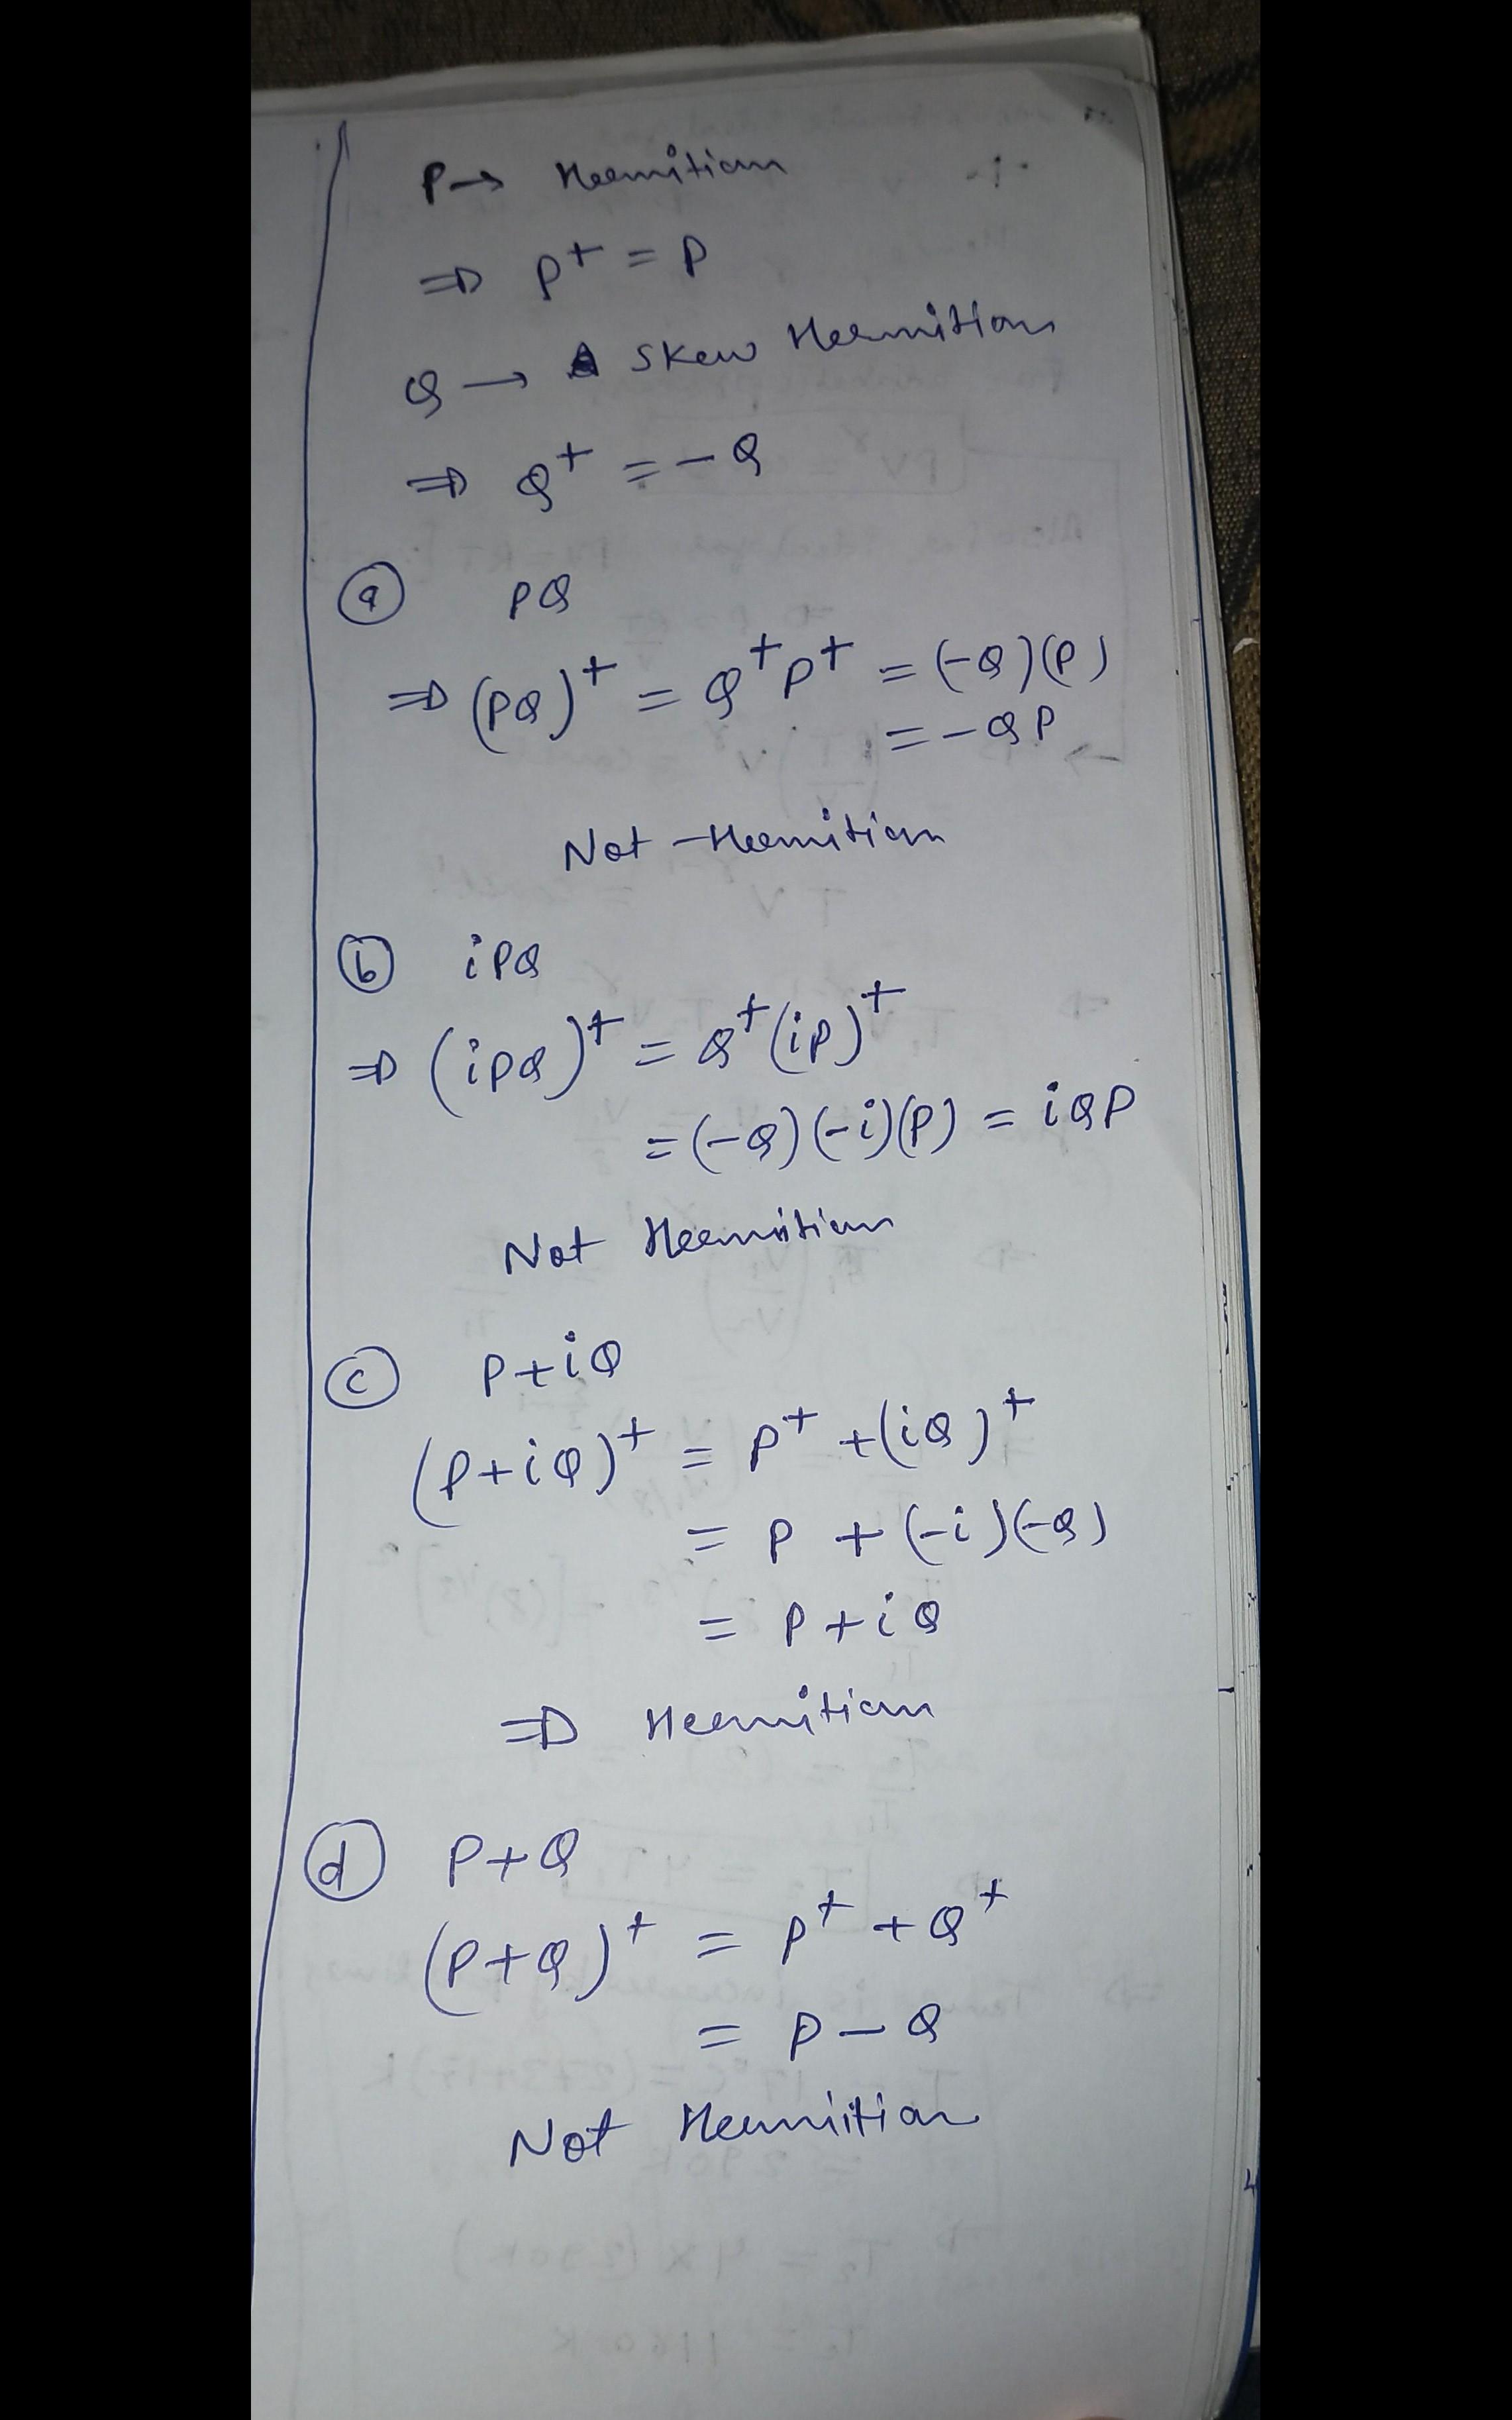 P → Hermitian
⇒ P⁺ = P
Q → Skew Hermitian
⇒ Q⁺ = -Q
(a) PQ
⇒ (PQ)⁺ = Q⁺P⁺ = (-Q)(P)
= -QP
Not Hermitian
(b) iPQ
⇒ (iPQ)⁺ = Q⁺(iP)⁺
= (-Q)(-i)(P) = iQP
Not Hermitian
(c) P+iQ
(P+iQ)⁺ = P⁺ + (iQ)⁺
= P + (-i)(-Q)
= P + iQ
⇒ Hermitian
(d) P+Q
(P+Q)⁺ = P⁺ + Q⁺
= P - Q
Not Hermitian